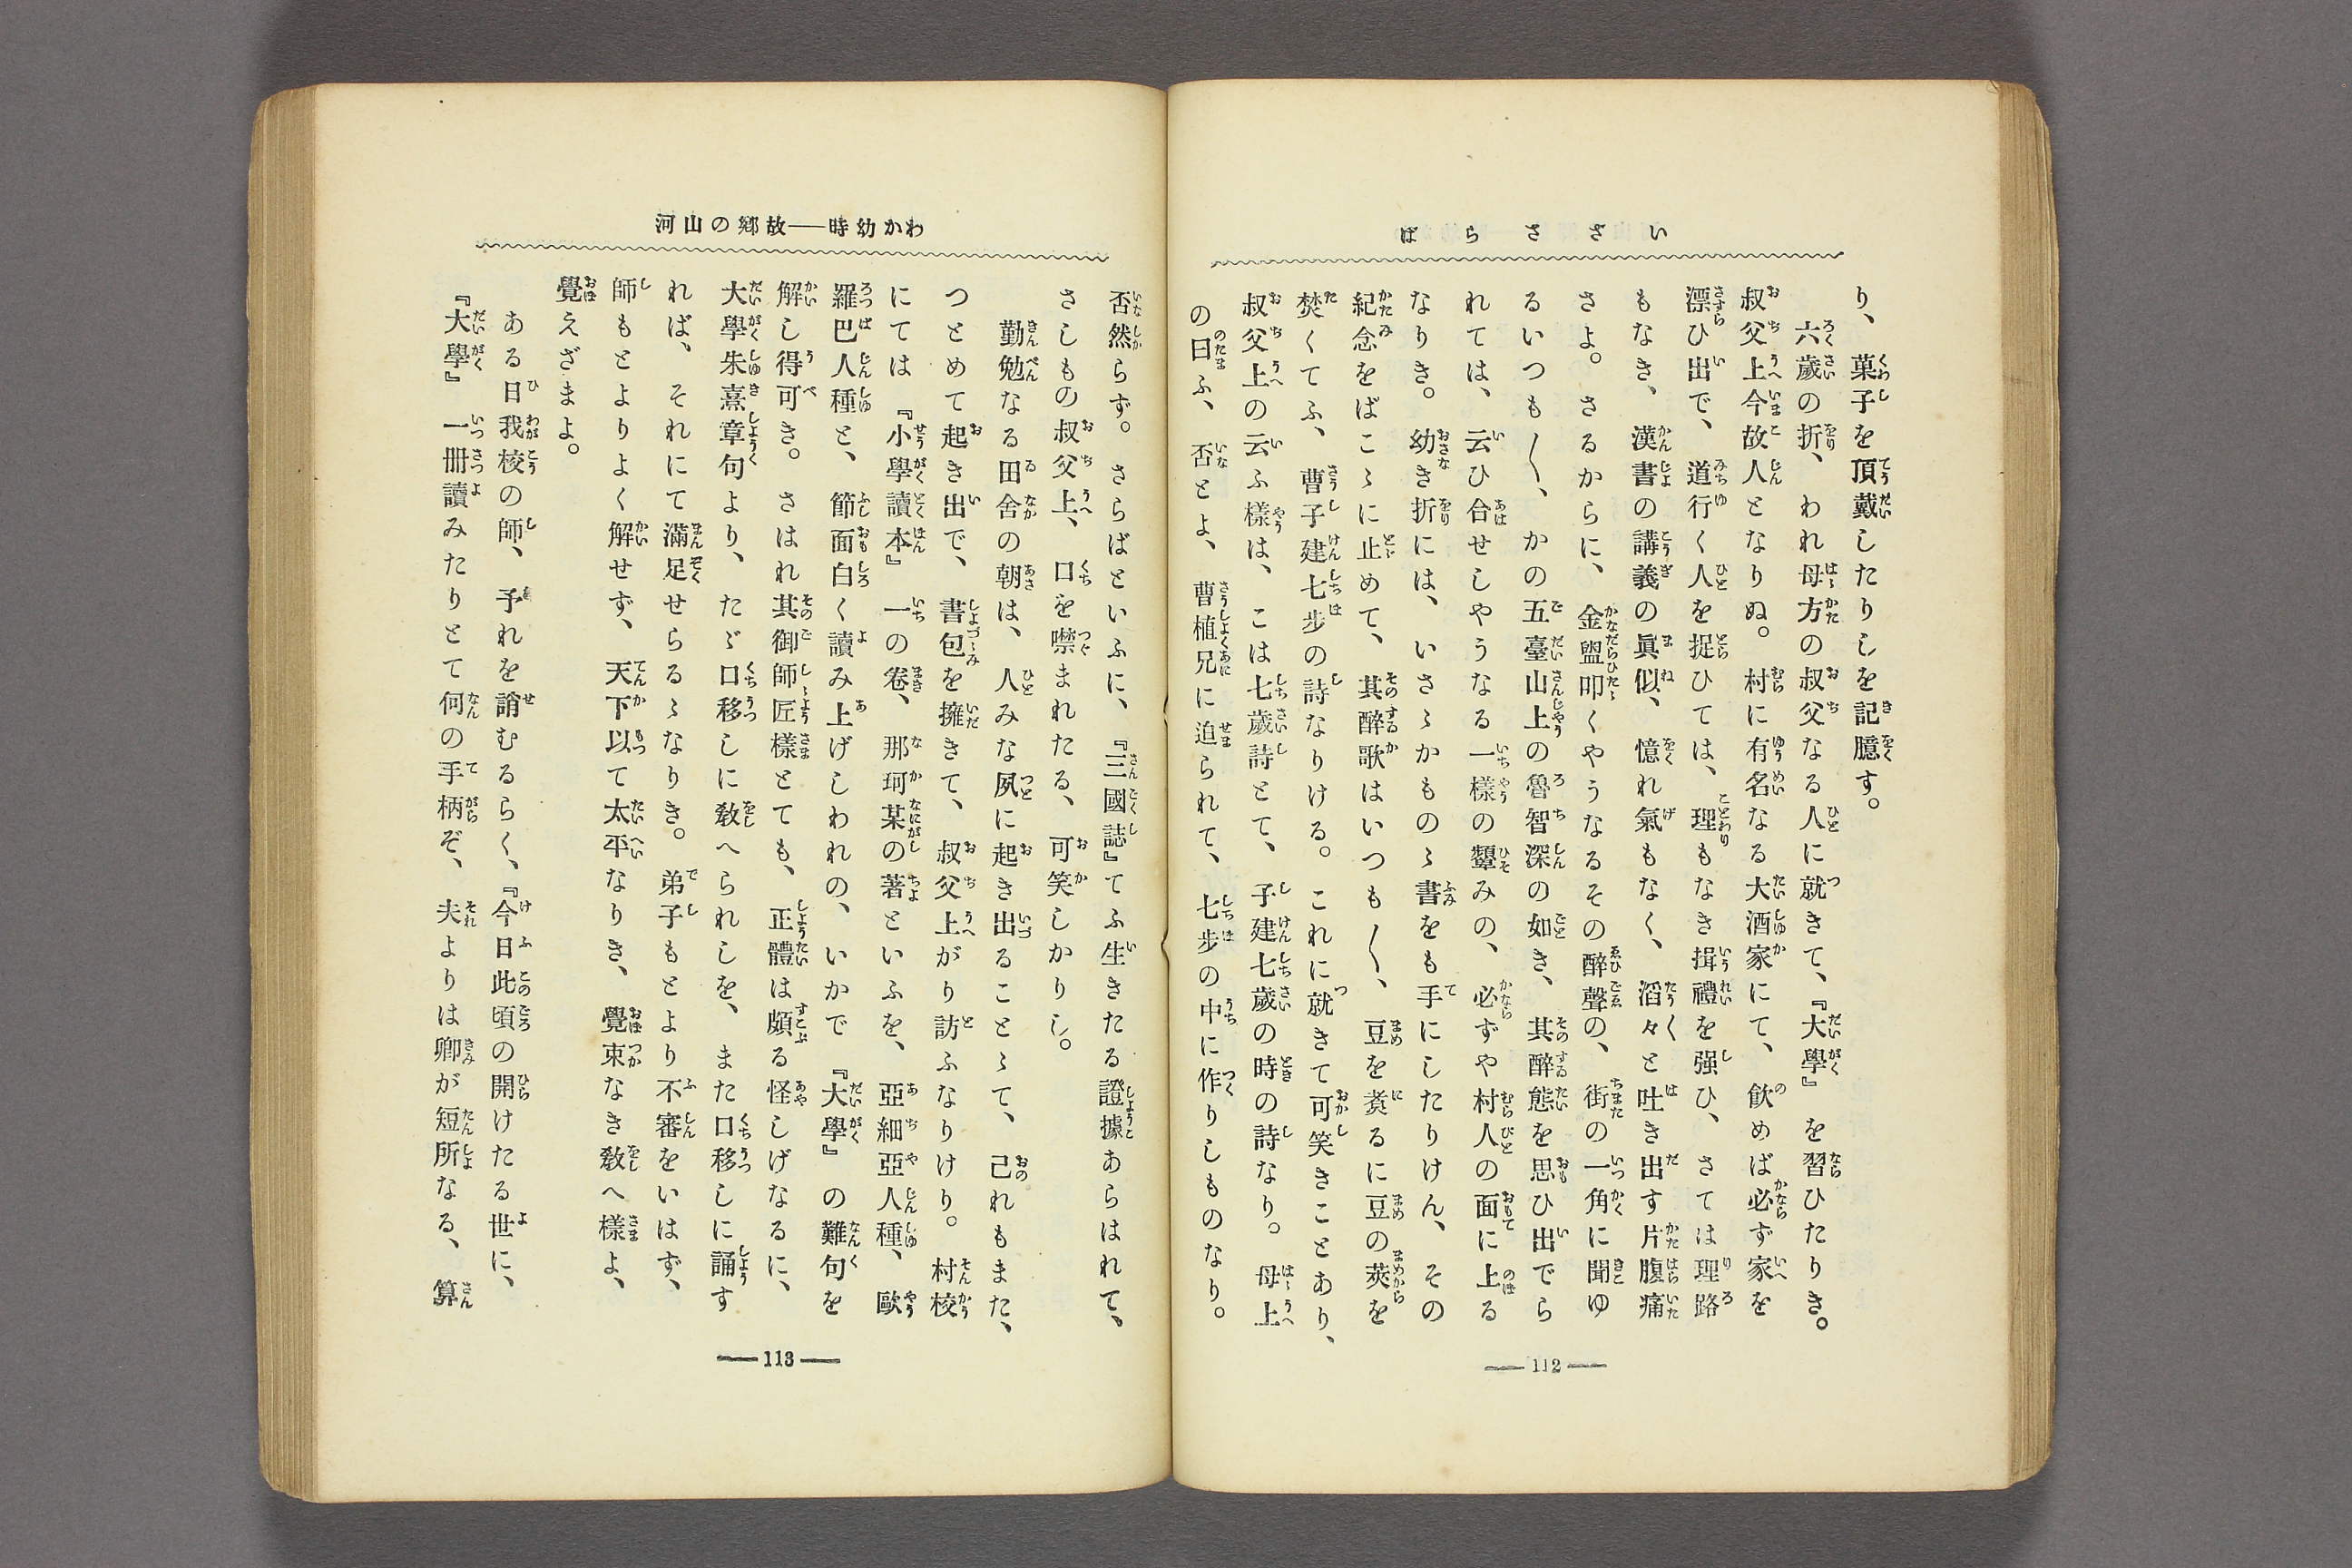 いささらば
り、菓子を頂戴したりしを記臆す。
六歲の折、われ母方の叔父なる人に就きて、『大學』を習ひたりき。
叔父上今故人となりぬ。村に有名なる大酒家にて、飮めば必ず家を
漂ひ出で、道行く人を捉ひては、理もなき揖禮を强ひ、さては理路
もなき、漢書の講義の眞似、憶れ氣もなく、滔々と吐き出す片腹痛
さよ。さるからに、金盥叩くやうなるその醉聲の、街の一角に聞ゆ
るいつも〳〵、かの五臺山上の魯智深の如き、其醉態を思ひ出でら
れては、云ひ合せしやうなる一樣の顰みの、必ずや村人の面に上る
なりき。幼き折には、いさゝかものゝ書をも手にしたりけん、その
紀念をばこゝに止めて、其醉歌はいつも〳〵、豆を煑るに豆の莢を
焚くてふ、曹子建七步の詩なりける。これに就きて可笑きことあり、
叔父上の云ふ樣は、こは七歲詩とて、子建七歲の時の詩なり。母上
の曰ふ、否とよ、曹植兄に迫られて、七步の中に作りしものなり。
112
わか幼時――故鄕の山河
否然らず。さらばといふに、『三國誌』てふ生きたる證據あらはれて、
さしもの叔父上、口を噤まれたる、可笑しかりし。
勤勉なる田舍の朝は、人みな夙に起き出ることゝて、己れもまた、
つとめて起き出で、書包を擁きて、叔父上がり訪ふなりけり。村校
にては『小學讀本』一の卷、那珂某の著といふを、亞細亞人種、歐
羅巴人種と、節面白く讀み上げしわれの、いかで『大學』の難句を
解し得可き。さはれ其御師匠樣とても、正體は頗る怪しげなるに、
大學朱熹章句より、たゞ口移しに敎へられしを、また口移しに誦す
れば、それにて滿足せらるゝなりき。弟子もとより不審をいはず、
師もとよりよく解せず、天下以て太平なりき、覺束なき敎へ樣よ、
覺えざまよ。
ある日我校の師、予れを誚むるらく、『今日此頃の開けたる世に、
『大學』一册讀みたりとて何の手柄ぞ、夫よりは卿が短所なる、算
113